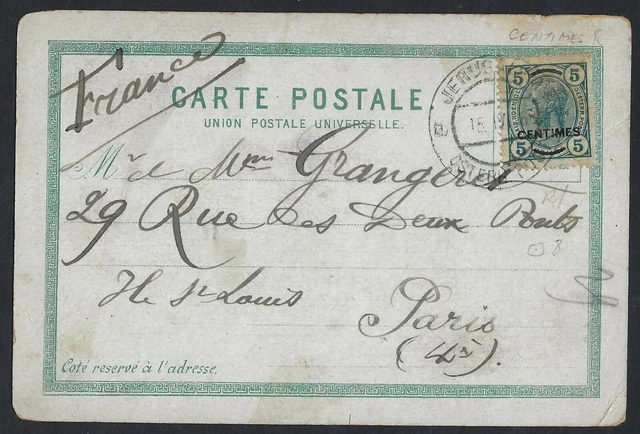 CENTIMES
France
CARTE POSTALE
UNION POSTALE UNIVERSELLE.
JERUS
15
ÖSTERR
5 5
CENTIMES
5 5
Mr de Mme Grangeret
29 Rue des Deux Ponts
8
Ile St Louis
Paris
(4e).
Coté reservé à l'adresse.